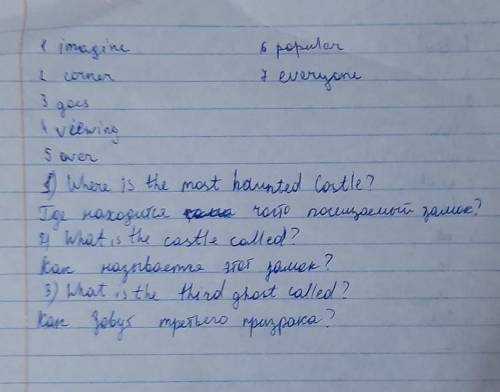 1 imagine 6 popular
2 corner 7 everyone
3 goes
4 viewing
5 over
1) Where is the most haunted Castle?
Где находится часто посещаемый замок?
2) What is the castle called?
Как называется этот замок?
3) What is the third ghost called?
Как зовут третьего призрака?